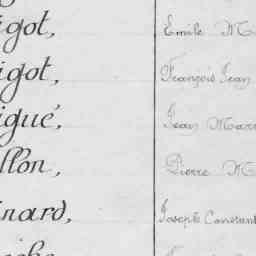 igot, Emile M
igot, François Jean
igué, Jean Marie
llon, Pierre M
inard, Joseph Constant